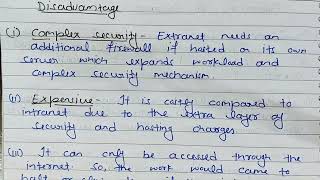 Disadvantage
(i) Complex security - Extranet needs an
additional firewall if hosted on its own
server which expands workload and
complex security mechanism.
(ii) Expensive - It is costly compared to
intranet due to the extra layer of
security and hosting charges.
(iii) It can only be accessed through the
internet. So, the work would came to
halt or